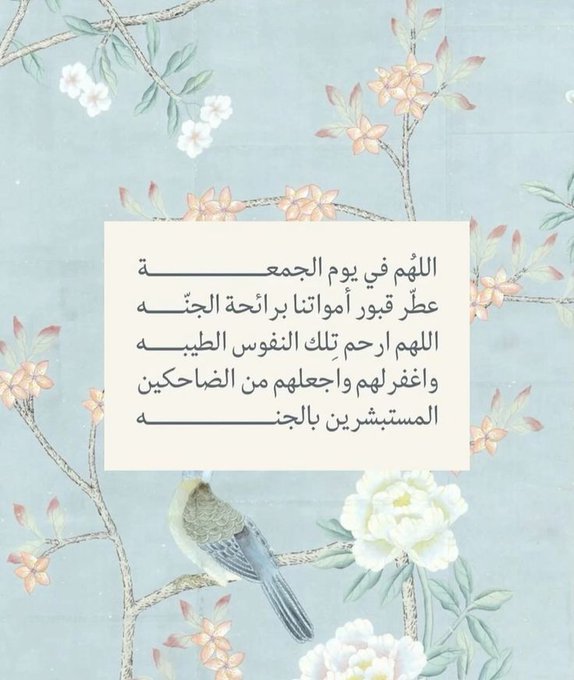 اللهُم في يوم الجمعـــــــــــــة
عطّر قبور أمواتنا برائحة الجنّـــــه
اللهم ارحم تِلك النفوس الطيبـــه
واغفرلهم واجعلهم من الضاحكين
المستبشرين بالجنـــــــــــــــه